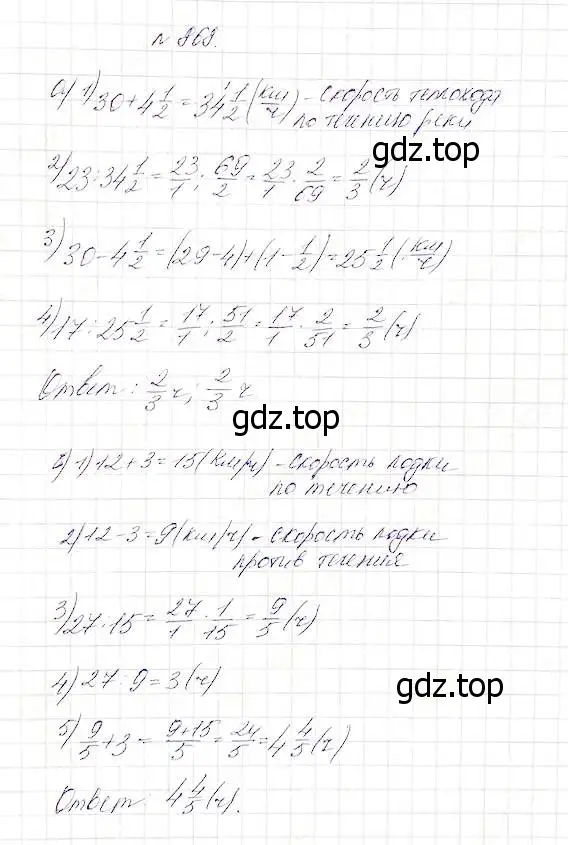 № 969.
а) 1) 30 + 4 1/2 = 34 1/2 (км/ч) - скорость теплохода
по течению реки
gdz.top
2) 23 : 34 1/2 = 23/1 : 69/2 = 23/1 · 2/69 = 2/3 (ч)
3) 30 - 4 1/2 = (29 - 4) + (1 - 1/2) = 25 1/2 (км/ч)
4) 17 : 25 1/2 = 17/1 : 51/2 = 17/1 · 2/51 = 2/3 (ч)
Ответ: 2/3 ч; 2/3 ч
gdz.top
б) 1) 12 + 3 = 15 (км/ч) - скорость лодки
по течению
2) 12 - 3 = 9 (км/ч) - скорость лодки
против течения
3) 27 : 15 = 27/1 · 1/15 = 9/5 (ч)
4) 27 : 9 = 3 (ч)
gdz.top
5) 9/5 + 3 = 9+15/5 = 24/5 = 4 4/5 (ч)
Ответ: 4 4/5 (ч).
gdz.top